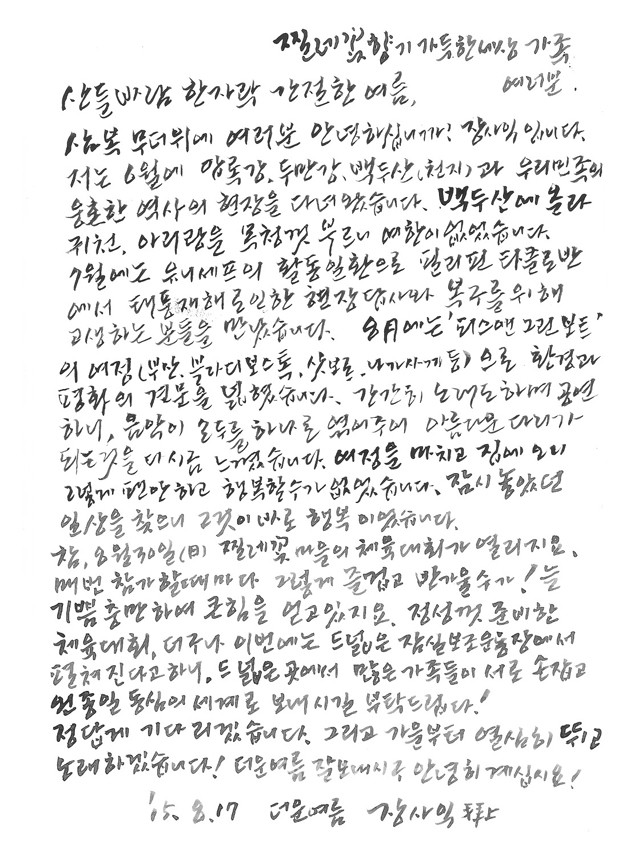 찔레꽃 향기 가득한 세상 가족
여러분.
산들바람 한자락 간절한 여름,
삼복 무더위에 여러분 안녕하십니까? 장사익 입니다.
저는 6월에 압록강, 두만강, 백두산(천지)과 우리민족의
웅혼한 역사의 현장을 다녀왔습니다. 백두산에 올라
귀천, 아리랑을 목청껏 부르니 여한이 없었습니다.
7월에는 유니세프의 활동일환으로 필리핀 타클로반
에서 태풍재해로인한 현장답사와 복구를위해
고생하는 분들을 만났습니다. 8月에는 '피스앤그린보트'
의 여정(부산, 블라디보스톡, 삿보로, 나가사께 등)으로 환경과
평화의 견문을 넓혔습니다. 간간히 노래도하며 공연
하니, 음악이 모두를 하나로 엮어주어 아름다운 다리가
되는것을 다시금 느꼈습니다. 여정을 마치고 집에 오니
그렇게 편안하고 행복할수가 없었습니다. 잠시 놓았던
일상을 찾으니 그것이 바로 행복이었습니다.
참, 8월30일(日) 찔레꽃마을의 체육대회가 열리지요.
매번 참가할때마다 그렇게 즐겁고 반가울수가! 늘
기쁨 충만하여 큰힘을 얻고있지요. 정성껏 준비한
체육대회, 더구나 이번에는 드넓은 잠실보조운동장에서
펼쳐진다고하니, 드넓은 곳에서 많은 가족들이 서로 손잡고
왼종일 동심의 세계로 보내시길 부탁드립니다!
정답게 기다리겠습니다. 그리고 가을부터 열심히 뛰고
노래하겠습니다! 더운여름 잘보내시구 안녕히 계십시요!
'15. 8. 17 더운여름 장사익 拜上